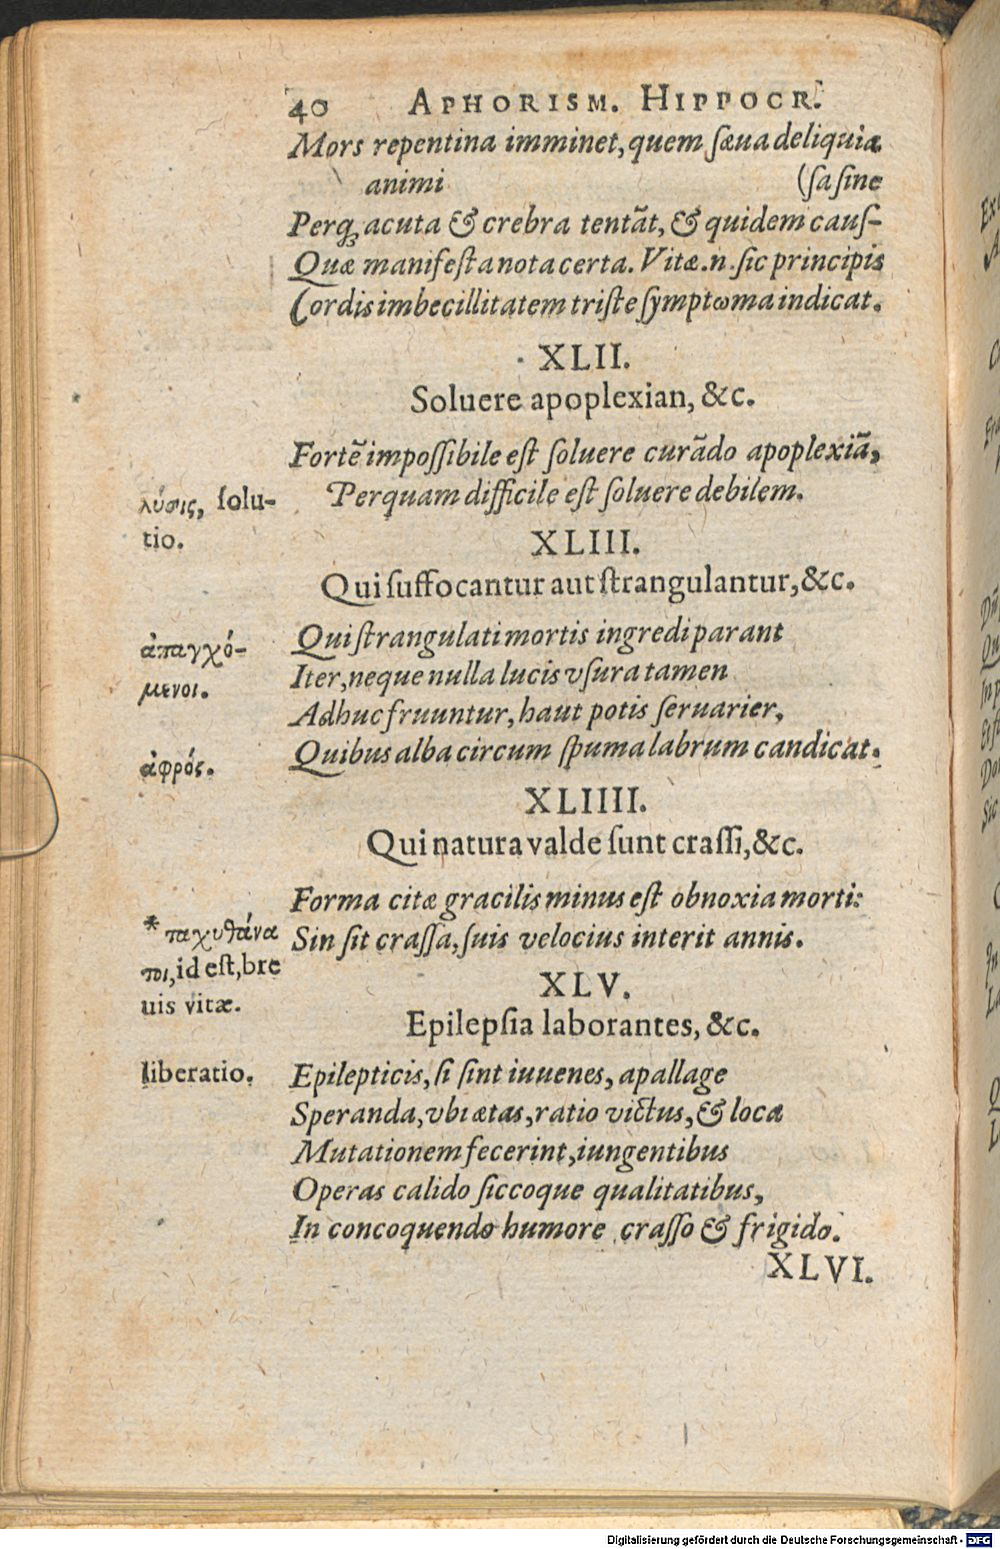 40 APHORISM. HIPPOCR.
Mors repentina imminet, quem sæua deliquia
animi (sa sine
Perq; acuta & crebra tentãt, & quidem cauſ-
Quæ manifeſta nota certa. Vitæ.n.ſic principis
Cordis imbecillitatem triſte ſymptωma indicat.
XLII.
Soluere apoplexian, &c.
Fortẽ impoſſibile eſt ſoluere curãdo apoplexiã,
λύσις, ſolu-
tio.
Perquam difficile eſt ſoluere debilem.
XLIII.
Qui ſuffocantur aut ſtrangulantur, &c.
ἀπαγχό-
μενοι.
Qui ſtrangulati mortis ingredi parant
Iter, neque nulla lucis vſura tamen
Adhuc fruuntur, haut potis ſeruarier,
ἀφρός.
Quibus alba circum ſpuma labrum candicat.
XLIIII.
Qui natura valde ſunt craſſi, &c.
Forma citæ gracilis minus eſt obnoxia morti:
* παχυθάνα
τοι, id eſt, bre
uis vitæ.
Sin ſit craſſa, ſuis velocius interit annis.
XLV.
Epilepſia laborantes, &c.
liberatio.
Epilepticis, ſi ſint iuuenes, apallage
Speranda, vbi ætas, ratio victus, & loca
Mutationem fecerint, iungentibus
Operas calido ſiccoque qualitatibus,
In concoquendo humore craſſo & frigido.
XLVI.
Digitalisierung gefördert durch die Deutsche Forschungsgemeinschaft - DFG